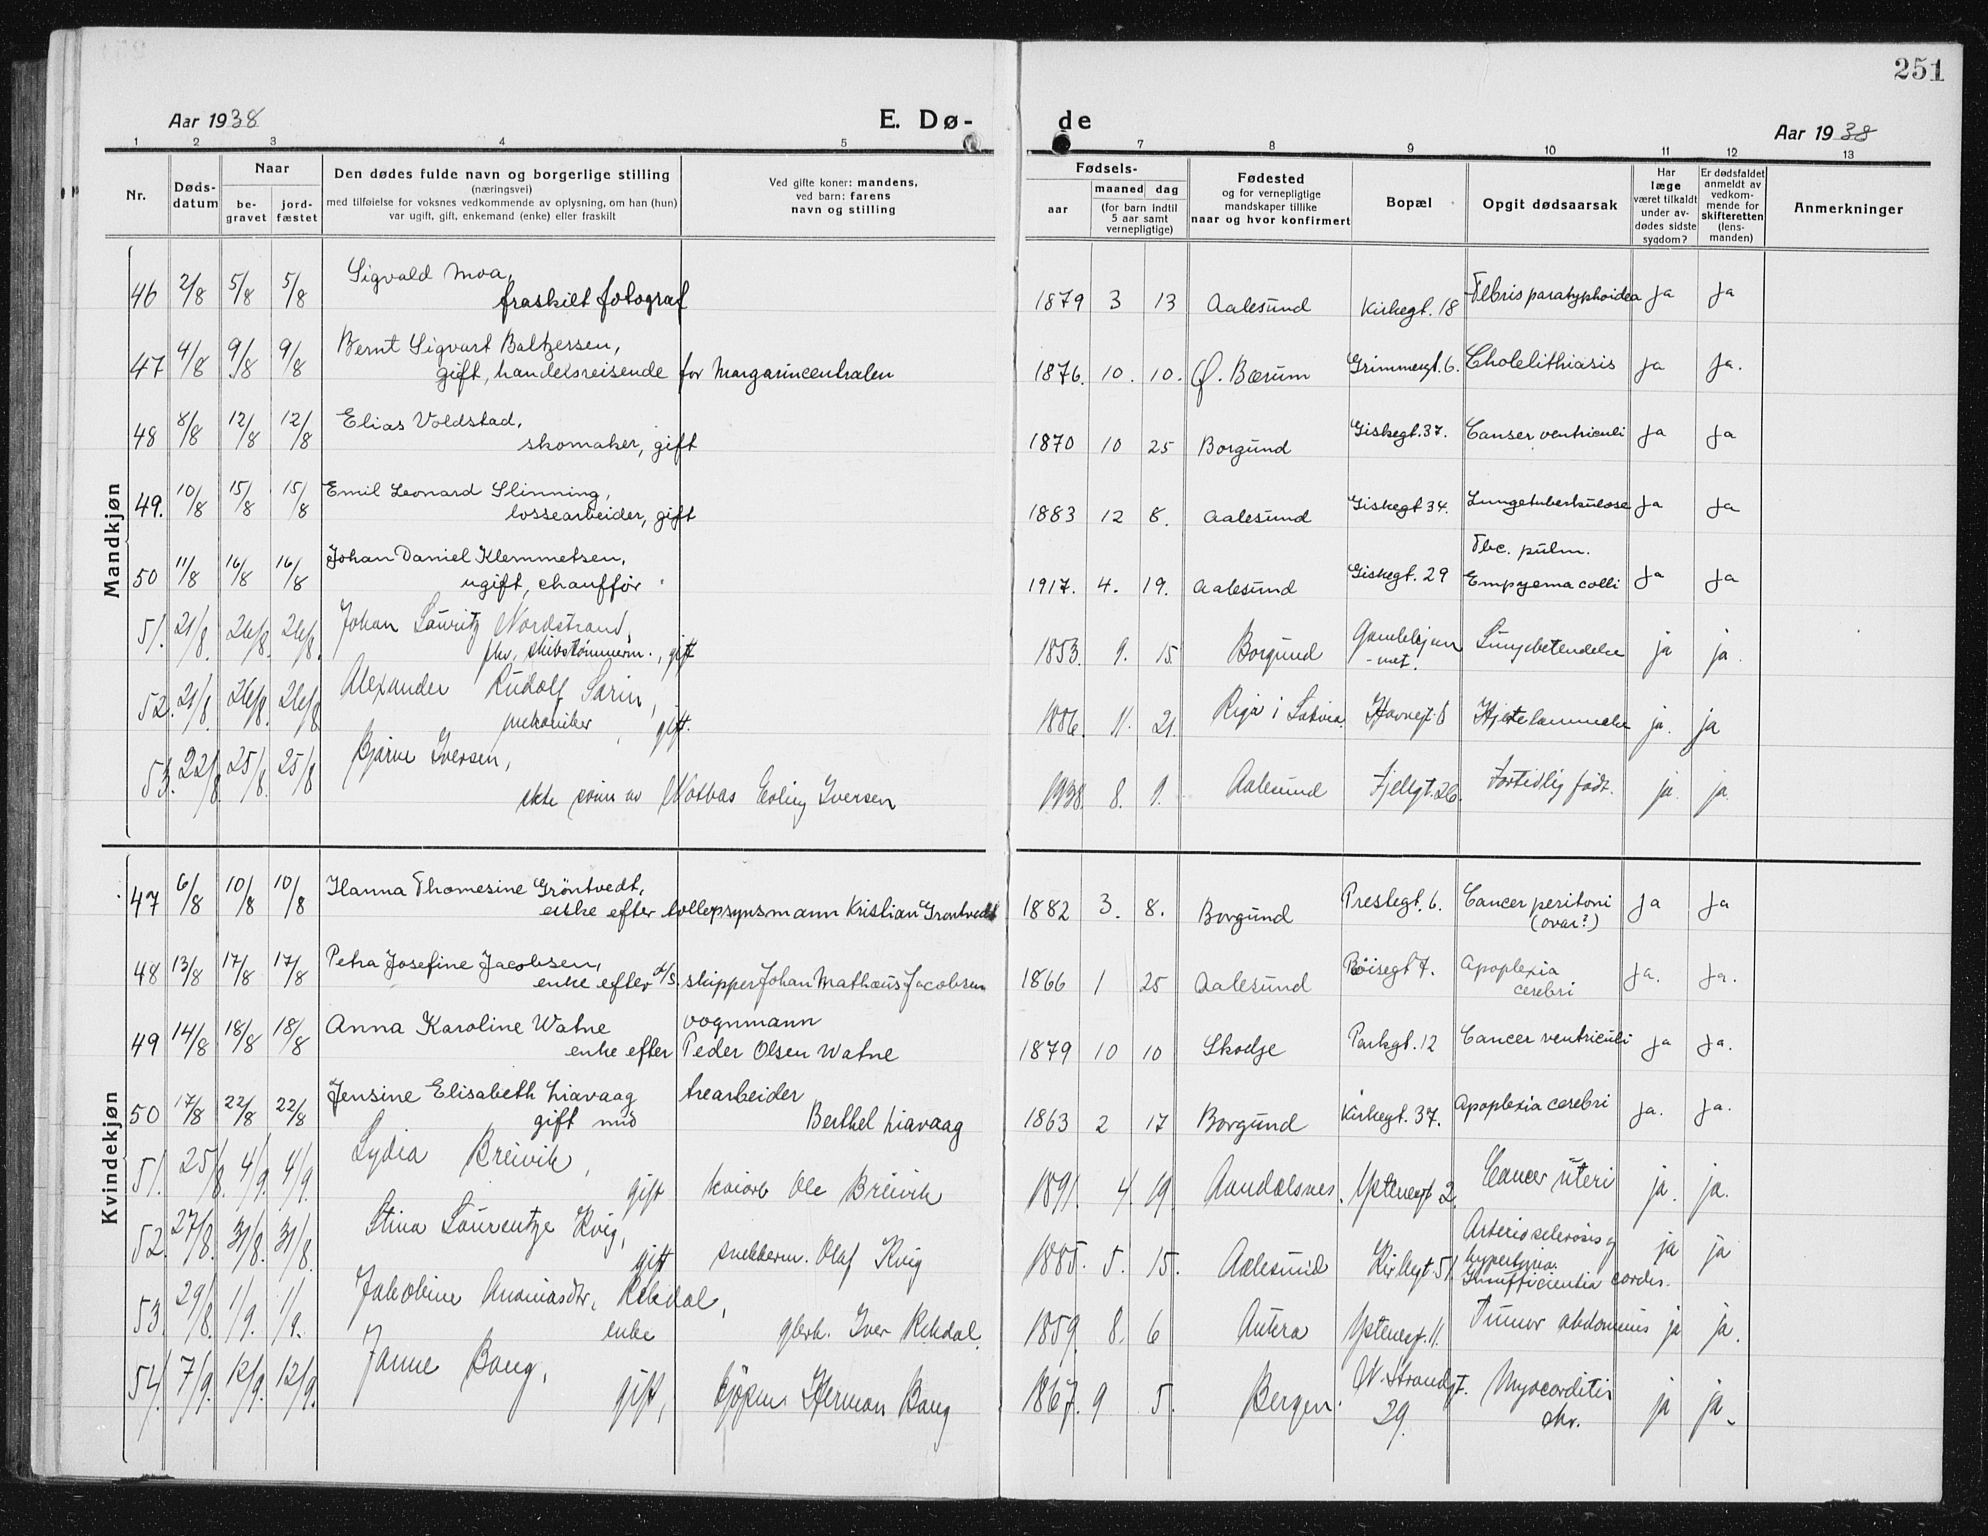 251
Aar 1938
E. Dø-
de
Aar 1938
1 2 3 4 5 7 8 9 10 11 12 13
Nr.
Døds-
datum
Naar
be-
gravet
jord-
fæstet
Den dødes fulde navn og borgerlige stilling
(næringsvei)
med tilføielse for voksnes vedkommende av oplysning, om han (hun)
var ugift, gift, enkemand (enke) eller fraskilt
Ved gifte koner: mandens,
ved barn: farens
navn og stilling
Fødsels-
aar
maaned dag
(for barn indtil
5 aar samt
vernepligtige)
Fødested
og for vernepligtige
mandskaper tillike
naar og hvor konfirmert
Bopæl
Opgit dødsaarsak
Har
læge
været tilkaldt
under av-
dødes sidste
sygdom?
Er dødsfaldet
anmeldt av
vedkom-
mende for
skifteretten
(lens-
manden)
Anmerkninger
Mandkjøn
46 2/8 5/8 5/8 Sigvald Moa,
fraskilt fotograf
1879 3 13 Aalesund Kirkegt. 18 Febris paratyphoidea Ja Ja
47 4/8 9/8 9/8 Bernt Sigvart Baltzersen,
gift, handelsreisende for Margarincentralen
1876. 10. 10. Ø. Bærum Grimmergt. 6. Cholelithiasis Ja Ja.
48 8/8 12/8 12/8 Elias Voldstad,
skomaker, gift
1870 10 25 Borgund Giskegt. 37. Canser ventriculi Ja Ja
49. 10/8 15/8 15/8 Emil Leonard Slinning,
lossearbeider, gift
1883 12 8. Aalesund Giskegt 34. Lungetuberkulose Ja Ja
50 11/8 16/8 16/8 Johan Daniel Klemmetsen,
ugift, chauffør
1917. 4. 19. Aalesund Giskegt. 29 Tbc. pulm.
Empyema colli Ja Ja
51. 21/8. 26/8. 26/8. Johan Lauritz Nordstrand,
fhv, skibstømmerm., gift
1853. 9. 15. Borgund Gamlehjem
-met. Lungebetendelse ja ja.
52. 21/8. 26/8. 26/8 Alexander Rudolf Sarin,
mekaniker, gift.
1886. 11. 21. Riga i Latvia. Havnegt. 8 Hjertelammelse ja. ja
53. 22/8. 25/8. 25/8 Bjarne Iversen,
ekte sønn av Notbas Erling Iversen
1938. 8. 9. Aalesund Fjellgt. 26. Fortidlig født. ja. ja.
Kvindekjøn
47 6/8 10/8 10/8 Hanna Thomesine Grøntvedt,
enke efter tollopsynsmann Kristian Grøntvedt
1882 3. 8. Borgund Prestegt. 6. Cancer peritoni
(ovar?) Ja Ja
48 13/8 17/8 17/8 Petra Josefine Jacobsen,
enke efter d/s. skipper Johan Mathæus Jacobsen
1866 1 25 Aalesund Røisegt 7. Apoplexia
cerebri Ja. Ja.
49 14/8 18/8 18/8 Anna Karoline Watne vognmann
enke efter Peder Olsen Watne
1879 10 10 Skodje Parkgt. 12 Cancer ventriculi Ja Ja.
50 17/8 22/8 22/8 Jensine Elisabeth Liavaag trearbeider
gift med Berthel Liavaag
1863 2 17 Borgund Kirkegt. 37. Apoplexia cerebri Ja. Ja.
51. 25/8. 4/9. 4/9. Lydia Breivik,
gift kaiarb Ole Breivik
1891. 4. 19. Aandalsnes. Ystenesgt 2. Cancer uteri ja. ja.
52. 27/8. 31/8. 31/8. Stina Laurentze Kvig,
gift snekkerm. Olaf Kvig
1885. 5. 15. Aalesund Kirkegt. 51. Arteriosclerosis og
hypertonia.
Insufficientia cordis. ja ja
53. 29/8. 1/9. 1/9. Jakobine Ananiasdtr. Rekdal,
enke gbrk. Iver Rekdal.
1859. 8. 6 Aukra Ystenesgt. 11. Tumor abdominis ja ja.
54. 7/9. 12/9. 12/9. Janne Bang,
gift, kjøpm Herman Bang
1867. 9 5. Bergen. N. Strandgt.
29. Myocarditis
chr. ja ja.